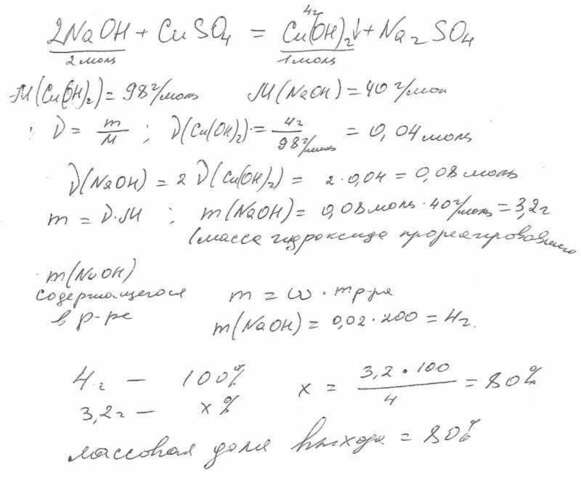 4г
2NaOH + CuSO4 = Cu(OH)2↓ + Na2SO4
2 моль 1 моль
M(Cu(OH)2) = 98 г/моль M(NaOH) = 40 г/мол
: ν = m/M ; ν(Cu(OH)2) = 4г/98 г/моль = 0,04 моль
ν(NaOH) = 2 ν(Cu(OH)2) = 2·0,04 = 0,08 моль
m = ν·M ; m(NaOH) = 0,08 моль · 40 г/моль = 3,2 г
(масса гидроксида прореагировавшего
m(NaOH)
содержащегося m = ω · mр-ра
в р-ре m(NaOH) = 0,02 · 200 = 4г.
4г — 100% x = 3,2 · 100/4 = 80%
3,2г — x%
массовая доля выхода = 80%